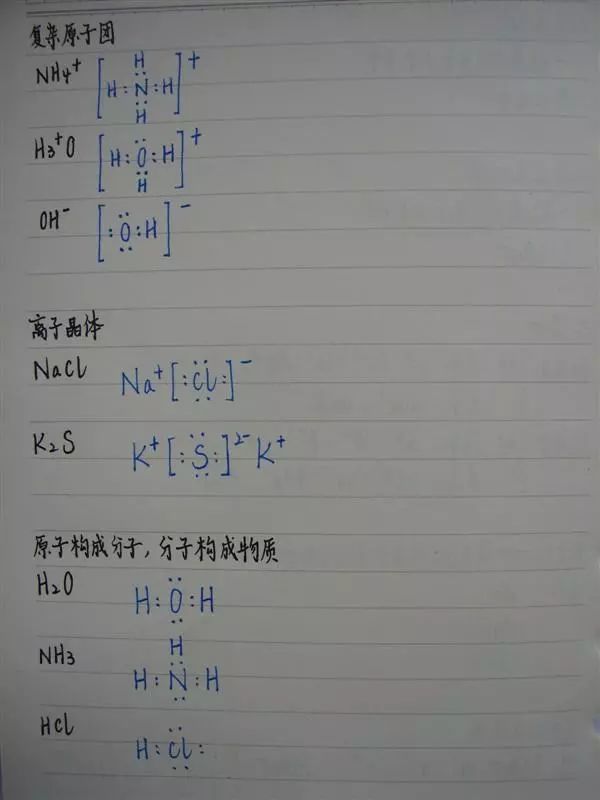 复杂原子团
H
NH4+ [H:N:H]+
H
H3+O [H:O:H]+
H
OH- [:O:H]-
离子晶体
NaCl Na+[:Cl:]-
K2S K+[:S:]2-K+
原子构成分子,分子构成物质
H2O H:O:H
H
NH3 H:N:H
HCl H:Cl: